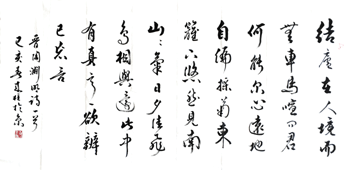 结庐在人境而
无车马喧问君
何能尔心远地
自偏采菊东
篱下悠然见南
山山气日夕佳飞
鸟相与还此中
有真意欲辨
已忘言
晋陶渊明诗一首